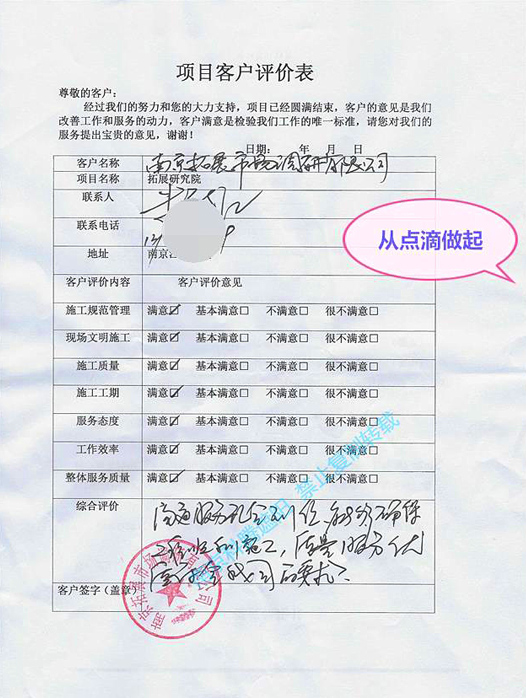 项目客户评价表
尊敬的客户：
经过我们的努力和您的大力支持，项目已经圆满结束，客户的意见是我们
改善工作和服务的动力，客户满意是检验我们工作的唯一标准，请您对我们的
服务提出宝贵的意见，谢谢！
日期： 年 月 日
客户名称 南京拓展市场调研有限公司
项目名称 拓展研究院
联系人
联系电话 13 9
地址 南京
从点滴做起
客户评价内容 客户评价意见
施工规范管理 满意☑ 基本满意□ 不满意□ 很不满意□
现场文明施工 满意☑ 基本满意□ 不满意□ 很不满意□
施工质量 满意☑ 基本满意□ 不满意□ 很不满意□
施工工期 满意☑ 基本满意□ 不满意□ 很不满意□
服务态度 满意☑ 基本满意□ 不满意□ 很不满意□
工作效率 满意☑ 基本满意□ 不满意□ 很不满意□
整体服务质量 满意☑ 基本满意□ 不满意□ 很不满意□
禁止复制转载
综合评价 沟通服务非常到位，能够确保
工程顺利施工，质量服务
完全符合我司的要求。
客户签字（盖章）